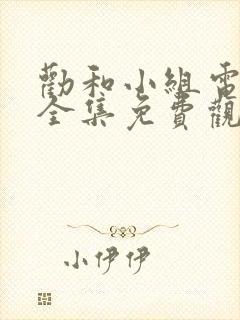 勸和小組電
全集免費觀
小伊伊